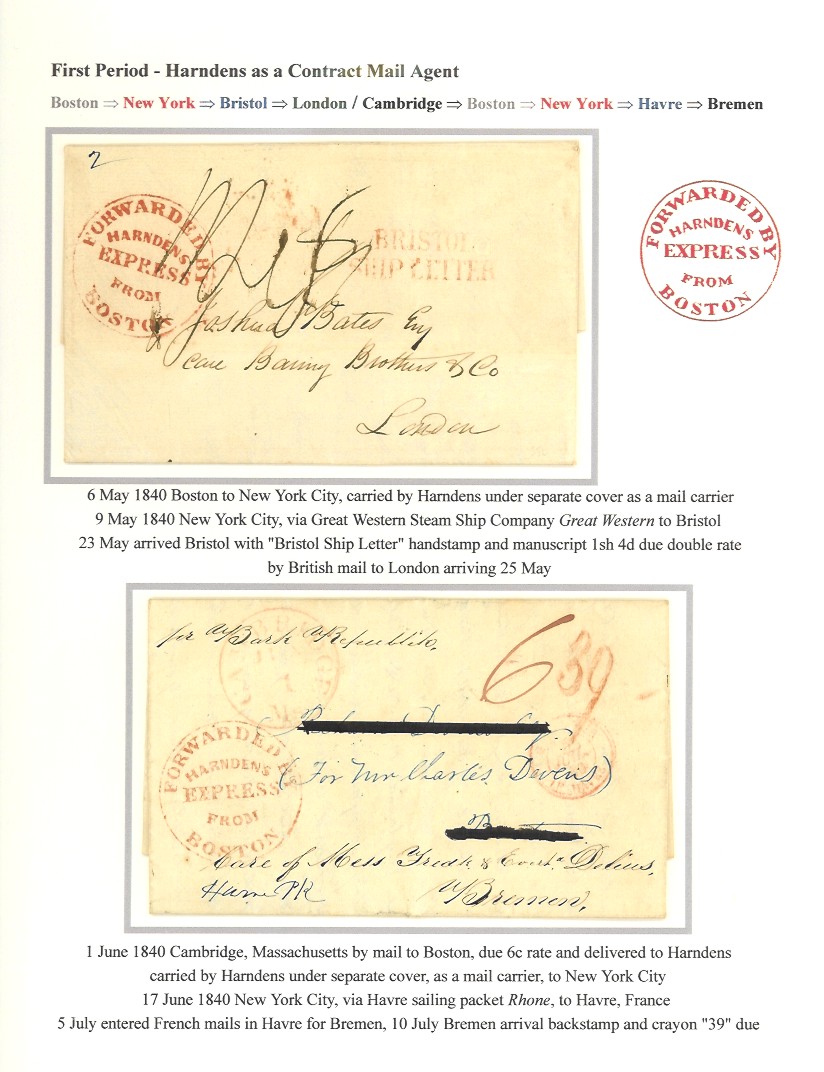 First Period - Harndens as a Contract Mail Agent
Boston ⇒ New York ⇒ Bristol ⇒ London / Cambridge ⇒ Boston ⇒ New York ⇒ Havre ⇒ Bremen
2
FORWARDED BY
HARNDENS
EXPRESS
FROM
BOSTON
BRISTOL
SHIP LETTER
Joshua Bates Esq
care Baring Brothers & Co
London
FORWARDED BY
HARNDENS
EXPRESS
FROM
BOSTON
6 May 1840 Boston to New York City, carried by Harndens under separate cover as a mail carrier
9 May 1840 New York City, via Great Western Steam Ship Company Great Western to Bristol
23 May arrived Bristol with "Bristol Ship Letter" handstamp and manuscript 1sh 4d due double rate
by British mail to London arriving 25 May
per Bark Republik,
6
39
FORWARDED BY
HARNDENS
EXPRESS
FROM
BOSTON
(For Mr Charles Devens)
Care of Mess Fredk & Everhd Delius,
Bremen,
1 June 1840 Cambridge, Massachusetts by mail to Boston, due 6c rate and delivered to Harndens
carried by Harndens under separate cover, as a mail carrier, to New York City
17 June 1840 New York City, via Havre sailing packet Rhone, to Havre, France
5 July entered French mails in Havre for Bremen, 10 July Bremen arrival backstamp and crayon "39" due